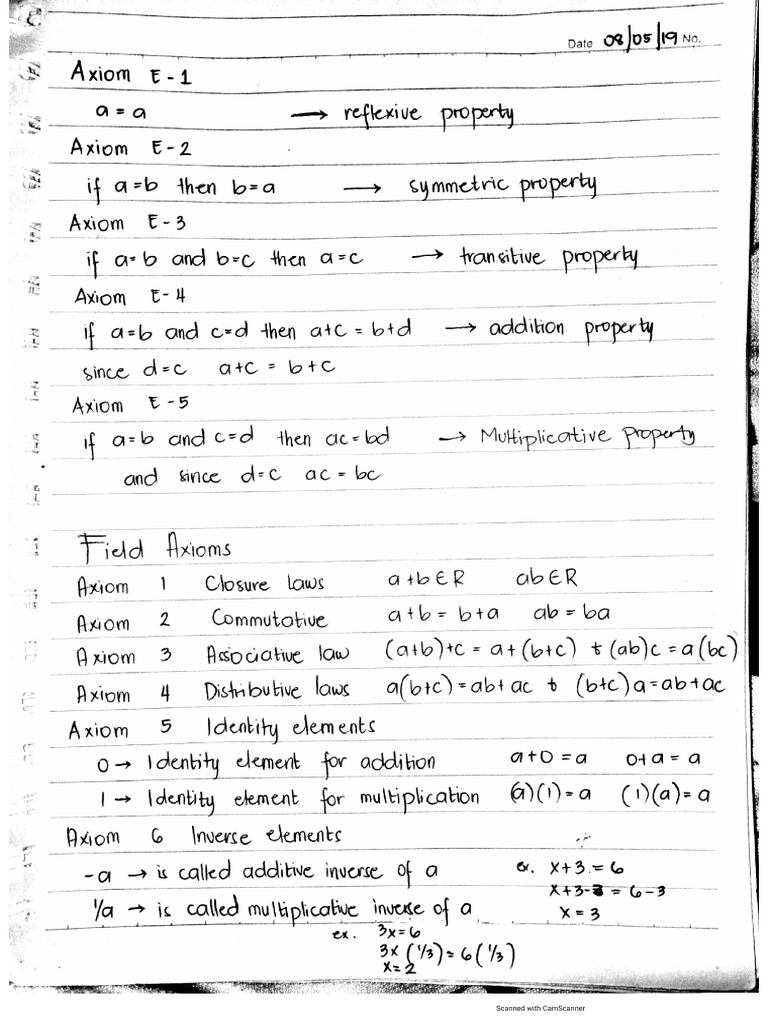 Date 08/05/19 No.
Axiom E-1
a = a → reflexive property
Axiom E-2
if a=b then b=a → symmetric property
Axiom E-3
if a=b and b=c then a=c → transitive property
Axiom E-4
if a=b and c=d then a+c = b+d → addition property
since d=c a+c = b+c
Axiom E-5
if a=b and c=d then ac=bd → Multiplicative property
and since d=c ac=bc
Field Axioms
Axiom 1 Closure laws a+b∈R ab∈R
Axiom 2 Commutative a+b = b+a ab = ba
Axiom 3 Associative law (a+b)+c = a+(b+c) & (ab)c = a(bc)
Axiom 4 Distributive laws a(b+c)=ab+ac & (b+c)a=ab+ac
Axiom 5 Identity elements
0 → Identity element for addition a+0=a 0+a=a
1 → Identity element for multiplication (a)(1)=a (1)(a)=a
Axiom 6 Inverse elements
-a → is called additive inverse of a ex. x+3=6
x+3-3 = 6-3
1/a → is called multiplicative inverse of a x=3
ex. 3x=6
3x (1/3) = 6 (1/3)
x=2
Scanned with CamScanner